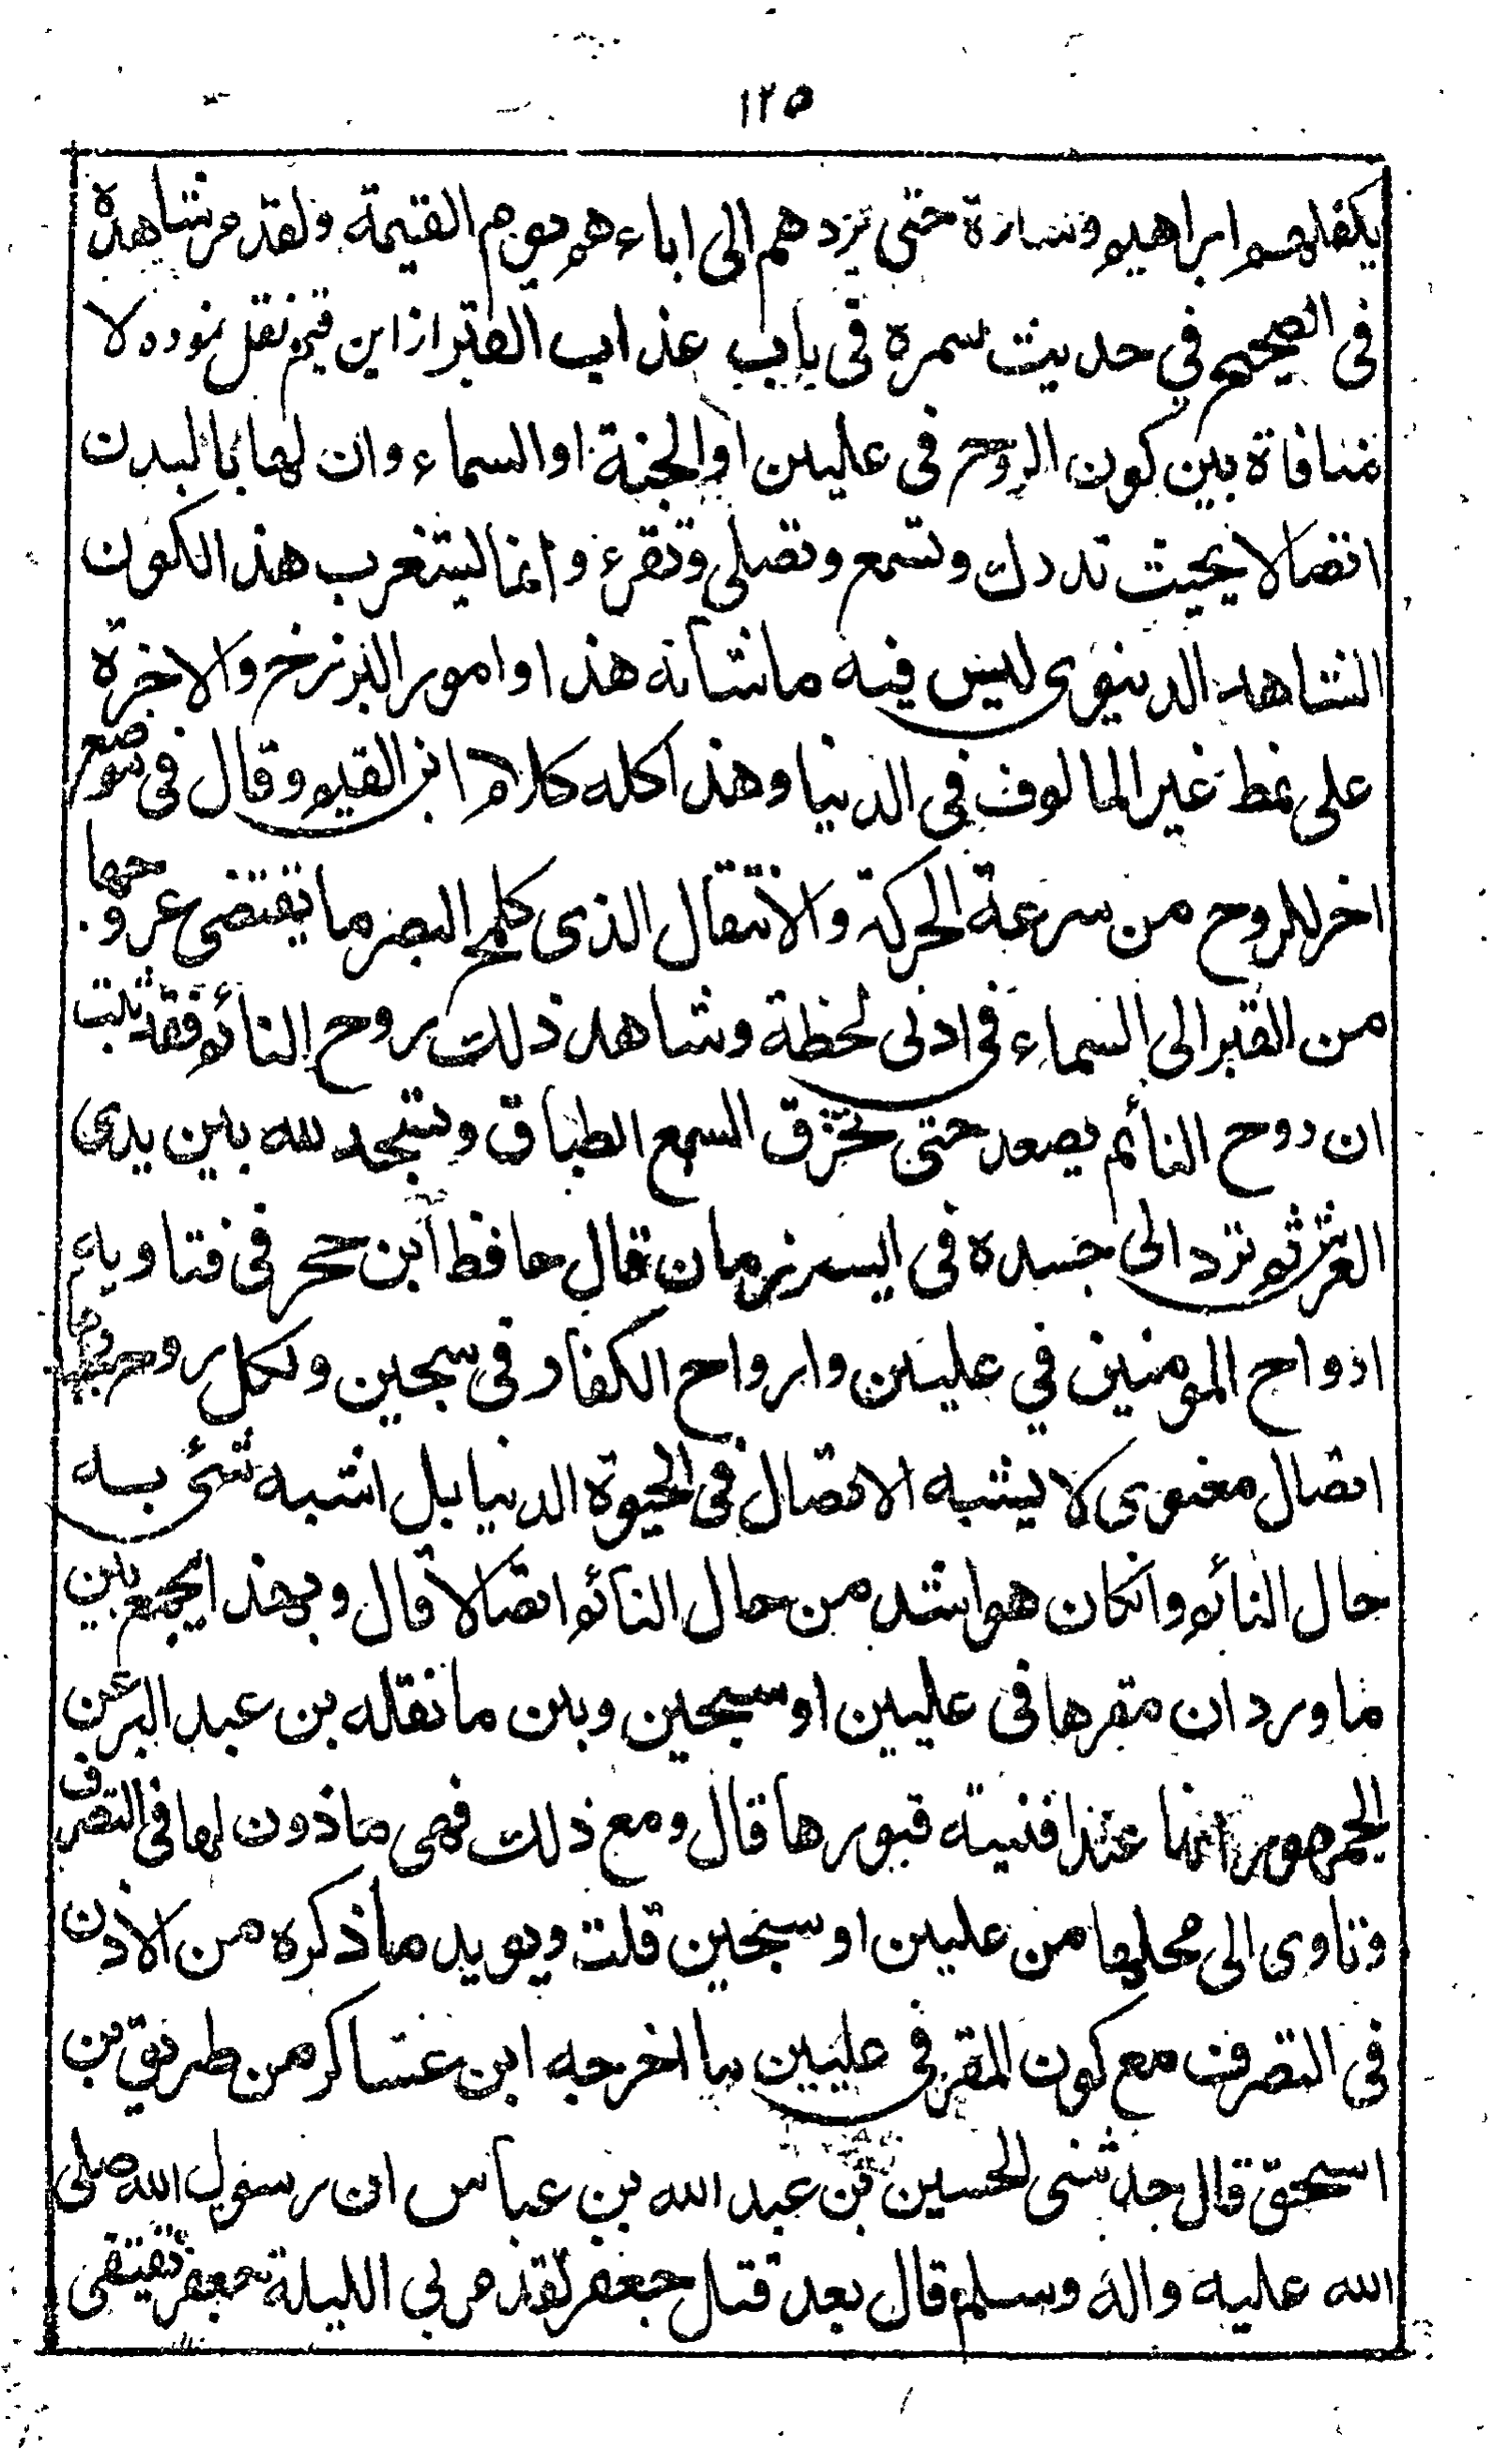 ١٢٥
يكفلهم ابراهيم وسارة حتى تردهم الى اباءهم يوم القيمة ولقد مر شاهدة
فى الصحيح في حديث سمرة فى باب عذاب القبر از ابن قيم نقل نموده لا
منافاة بين كون الروح فى عليين او الجنة او السماء وان لها بالبدن
اتصالا بحيث تدرك وتسمع وتصلى وتقرء وانما يستغرب هذا لكون
الشاهد الدينوى ليس فيه ما شانه هذا وامور البرزخ والاخرة
على نمط غير المالوف فى الدنيا وهذا كله كلام ابن القيم وقال فى موضع
اخر للروح من سرعة الحركة والانتقال الذى كلمح البصر ما يقتضى عروجها
من القبر الى السماء فى ادنى لحظة وشاهد ذلك روح النائم فقد ثبت
ان روح النائم يصعد حتى تخرق السبع الطباق وتسجد لله بين يدى
العرش ثم ترد الى جسده فى ايسر زمان قال حافظ ابن حجر فى فتاويه
ارواح المومنين في عليين وارواح الكفار فى سجين ولكل روح
اتصال معنوى لا يشبه الاتصال فى الحيوة الدنيا بل اشبه شئ به
حال النائم وانكان هو اشد من حال النائم اتصالا قال وبهذا يجمع بين
ما ورد ان مقرها فى عليين او سجين وبين ما نقله بن عبد البر عن
الجمهور انها عند افنية قبورها قال ومع ذلك فهى ماذون لها فى التصرف
وتاوى الى محلها من عليين او سجين قلت ويويد ما ذكره من الاذن
فى التصرف مع كون المقر فى عليين ما اخرجه ابن عساكر من طريق بن
اسحق قال حدثنى الحسين بن عبد الله بن عباس ان رسول الله صلى
الله عليه واله وسلم قال بعد قتل جعفر لقد مر بي الليلة جعفر يقتفى